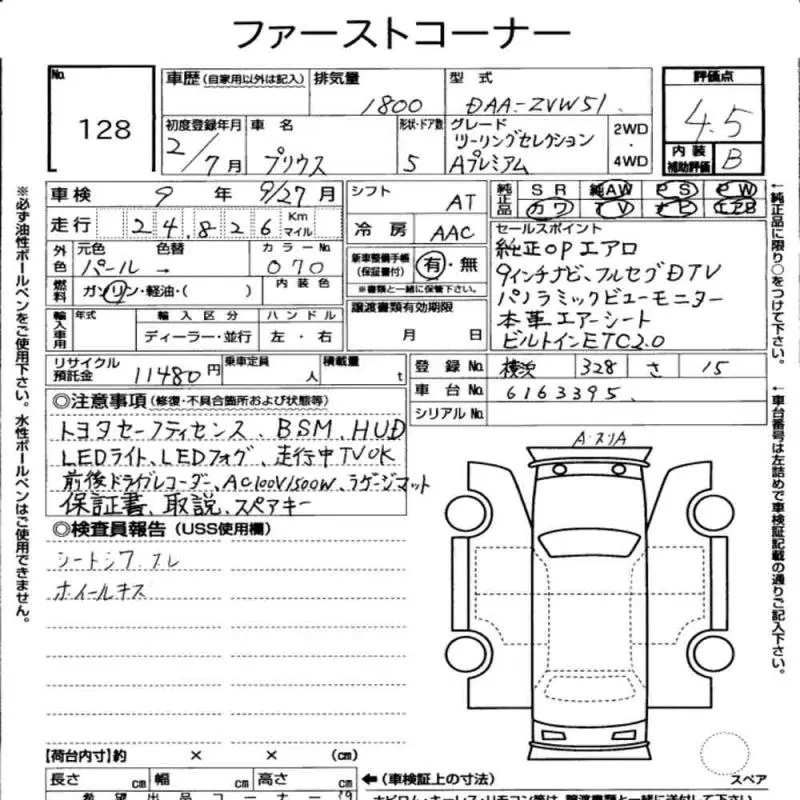 ファーストコーナー
No.
128
車歴(自家用以外は記入)
排気量
1800
型式
DAA-ZVW51
評価点
4.5
初度登録年月
2/7月
車名
プリウス
形状・ドア数
5
グレード
ツーリングセレクション
Aプレミアム
2WD
・
4WD
内装
補助評価
B
車検
9年9/27月
シフト
AT
純正品
SR 純AW PS PW
カワ TV ナビ エアB
走行
24826
Km
マイル
冷房
AAC
セールスポイント
純正OPエアロ
9インチナビ、フルセグDTV
パノラミックビューモニター
本革エアーシート
ビルトインETC2.0
外色
元色
パール
色替
→
カラーNo.
070
内装色
燃料
ガソリン・軽油・( )
新車整備手帳
(保証書付)
有・無
※書類と一緒に保管下さい。
輸入車用
年式
輸入区分
ディーラー・並行
ハンドル
左・右
譲渡書類有効期限
月 日
リサイクル
預託金
11480円
乗車定員
人
積載量
t
登録No.
横浜 328 さ 15
車台No.
6163395
シリアルNo.
◎注意事項(修復・不具合箇所および状態等)
トヨタセーフティセンス、BSM、HUD
LEDライト、LEDフォグ、走行中TVOK
前後ドライブレコーダー、AC100V1500W、ラゲージマット
保証書、取説、スペアキー
◎検査員報告(USS使用欄)
シートシワ、スレ
ホイールキズ
A・スリA
スペア
【荷台内寸】約 × × (cm)
長さ cm 幅 cm 高さ cm
←(車検証上の寸法)
希望出品コーナー
ナビロム・キーレス・リモコン等は、譲渡書類と一緒に送付して下さい。
※必ず油性ボールペンをご使用下さい。水性ボールペンはご使用できません。
←純正品に限り○をつけて下さい。
←車台番号は左詰めで車検証記載の通りご記入下さい。